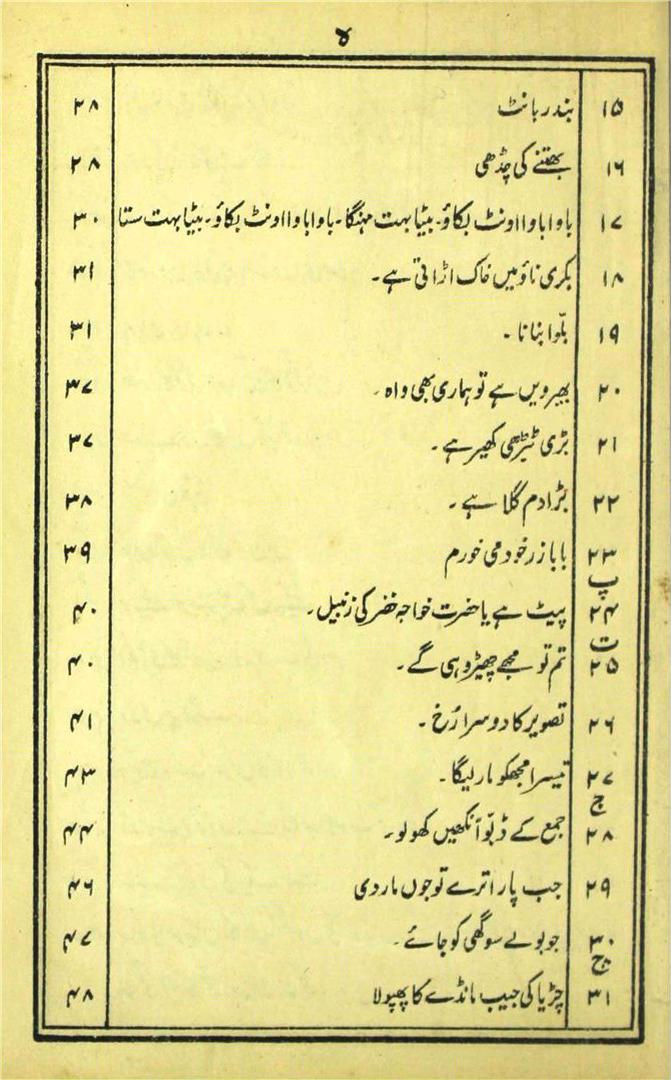 ۱۵ بندر بانٹ ۲۸
۱۶ بھتنے کی چڈھی ۲۸
۱۷ باوا باوا اونٹ بکاؤ۔ بیٹا بہت مہنگا۔ باوا باوا اونٹ بکاؤ۔ بیٹا بہت ستا ۳۰
۱۸ بکری ناؤ میں خاک اڑاتی ہے۔ ۳۱
۱۹ بلّوا بنانا۔ ۳۱
۲۰ بھیرویں ہے تو ہماری بھی واہ۔ ۳۷
۲۱ بڑی ٹیڑھی کھیر ہے۔ ۳۷
۲۲ بڑا دم گلا ہے۔ ۳۸
۲۳ بابا زر خود می خورم ۳۹
پ
۲۴ پیٹ ہے یا حضرت خواجہ خضر کی زنبیل۔ ۴۰
ت
۲۵ تم تو مجھے چھیڑو ہی گے۔ ۴۰
۲۶ تصویر کا دوسرا رُخ۔ ۴۱
۲۷ تیسرا مجھکو مار لیگا۔ ۴۳
ج
۲۸ جمع کے ڈبّو آنکھیں کھولو۔ ۴۴
۲۹ جب پار اترے تو جوں مار دی ۴۶
۳۰ جو بولے سو گھی کو جائے۔ ۴۷
چ
۳۱ چڑیا کی جیب مانڈے کا پھپولا ۴۸